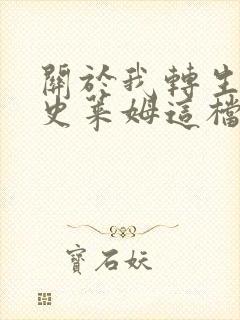 關於我轉生
史萊姆這檔
寶石妖